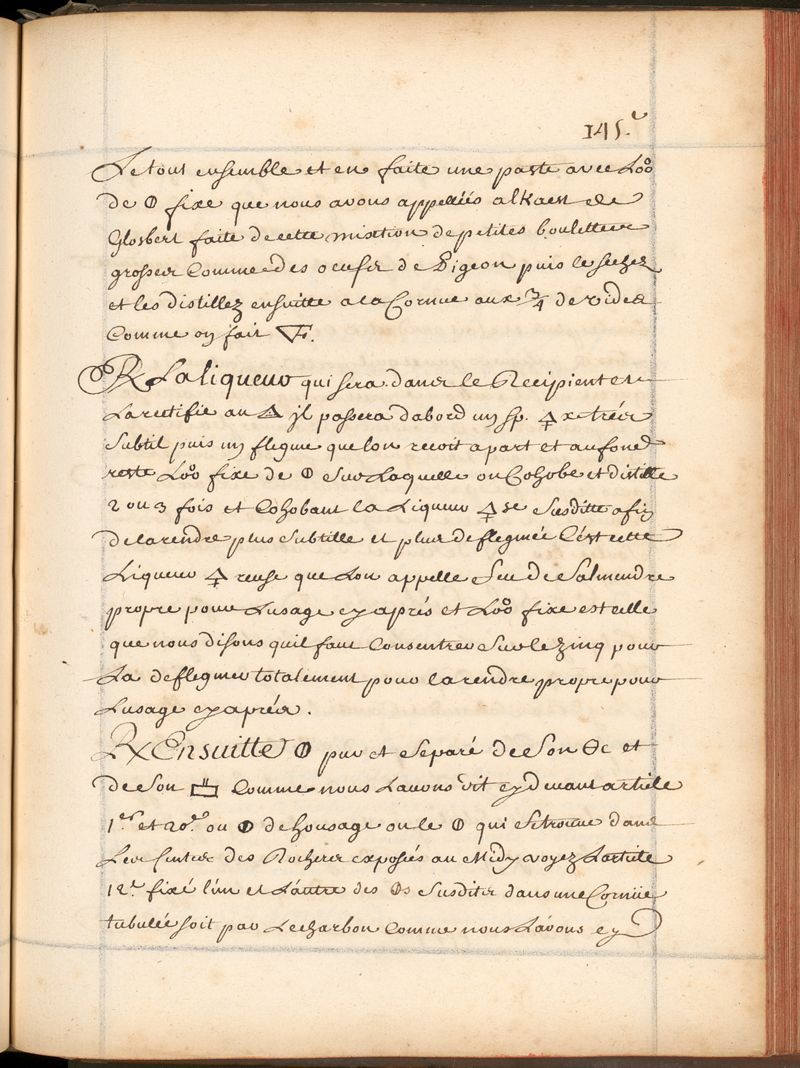 145.e
Le tout ensemble et en faite une paste avec L'o°o
de 🜕 fixe que nous avons appellés alkaest de
Glosbert faite de cette mixtion de petites boulettes
grosses Comme des oeufs de Pigeon puis le sechez
et les distillez ensuitte a la Cornue aux 3/4 de vides
Comme on fait 🜅.
℞ La liqueur qui sera dans le Recipient et
La rectifie au 🜂 jl passera d'abord un sp. 🜍 x très
subtil puis un flegme que lon recoit apart et au fond
reste L'o°o fixe de 🜕 sur Laquelle on Cohobe et distille
2 ou 3 fois et Cohobant la Liqueur 🜍 se susditte afin
de la rendre plus subtille et plus deflegmée C'est cette
Liqueur 🜍 reuse que Lon appelle feu de Salmendre
propre pour Lusage cy aprés et L'o°o fixe est celle
que nous disons quil faut Consentrer sur le zinq pour
La deflegmer totalement pour la rendre propre pour
Lusage cy aprés.
℞ Ensuitte 🜕 pur et separé de son Θc et
de son comme nous Lavons dit cy devant article
1.er et 20.e ou 🜕 de housage ou le 🜕 qui se trouve dans
Les fentes des Rochers exposés au Midy voyez Lartile
12.e fixé l'un et L'autre des 🜕s susdites dans une Cornüe
tubulée soit par Le charbon Comme nous L'avons cy